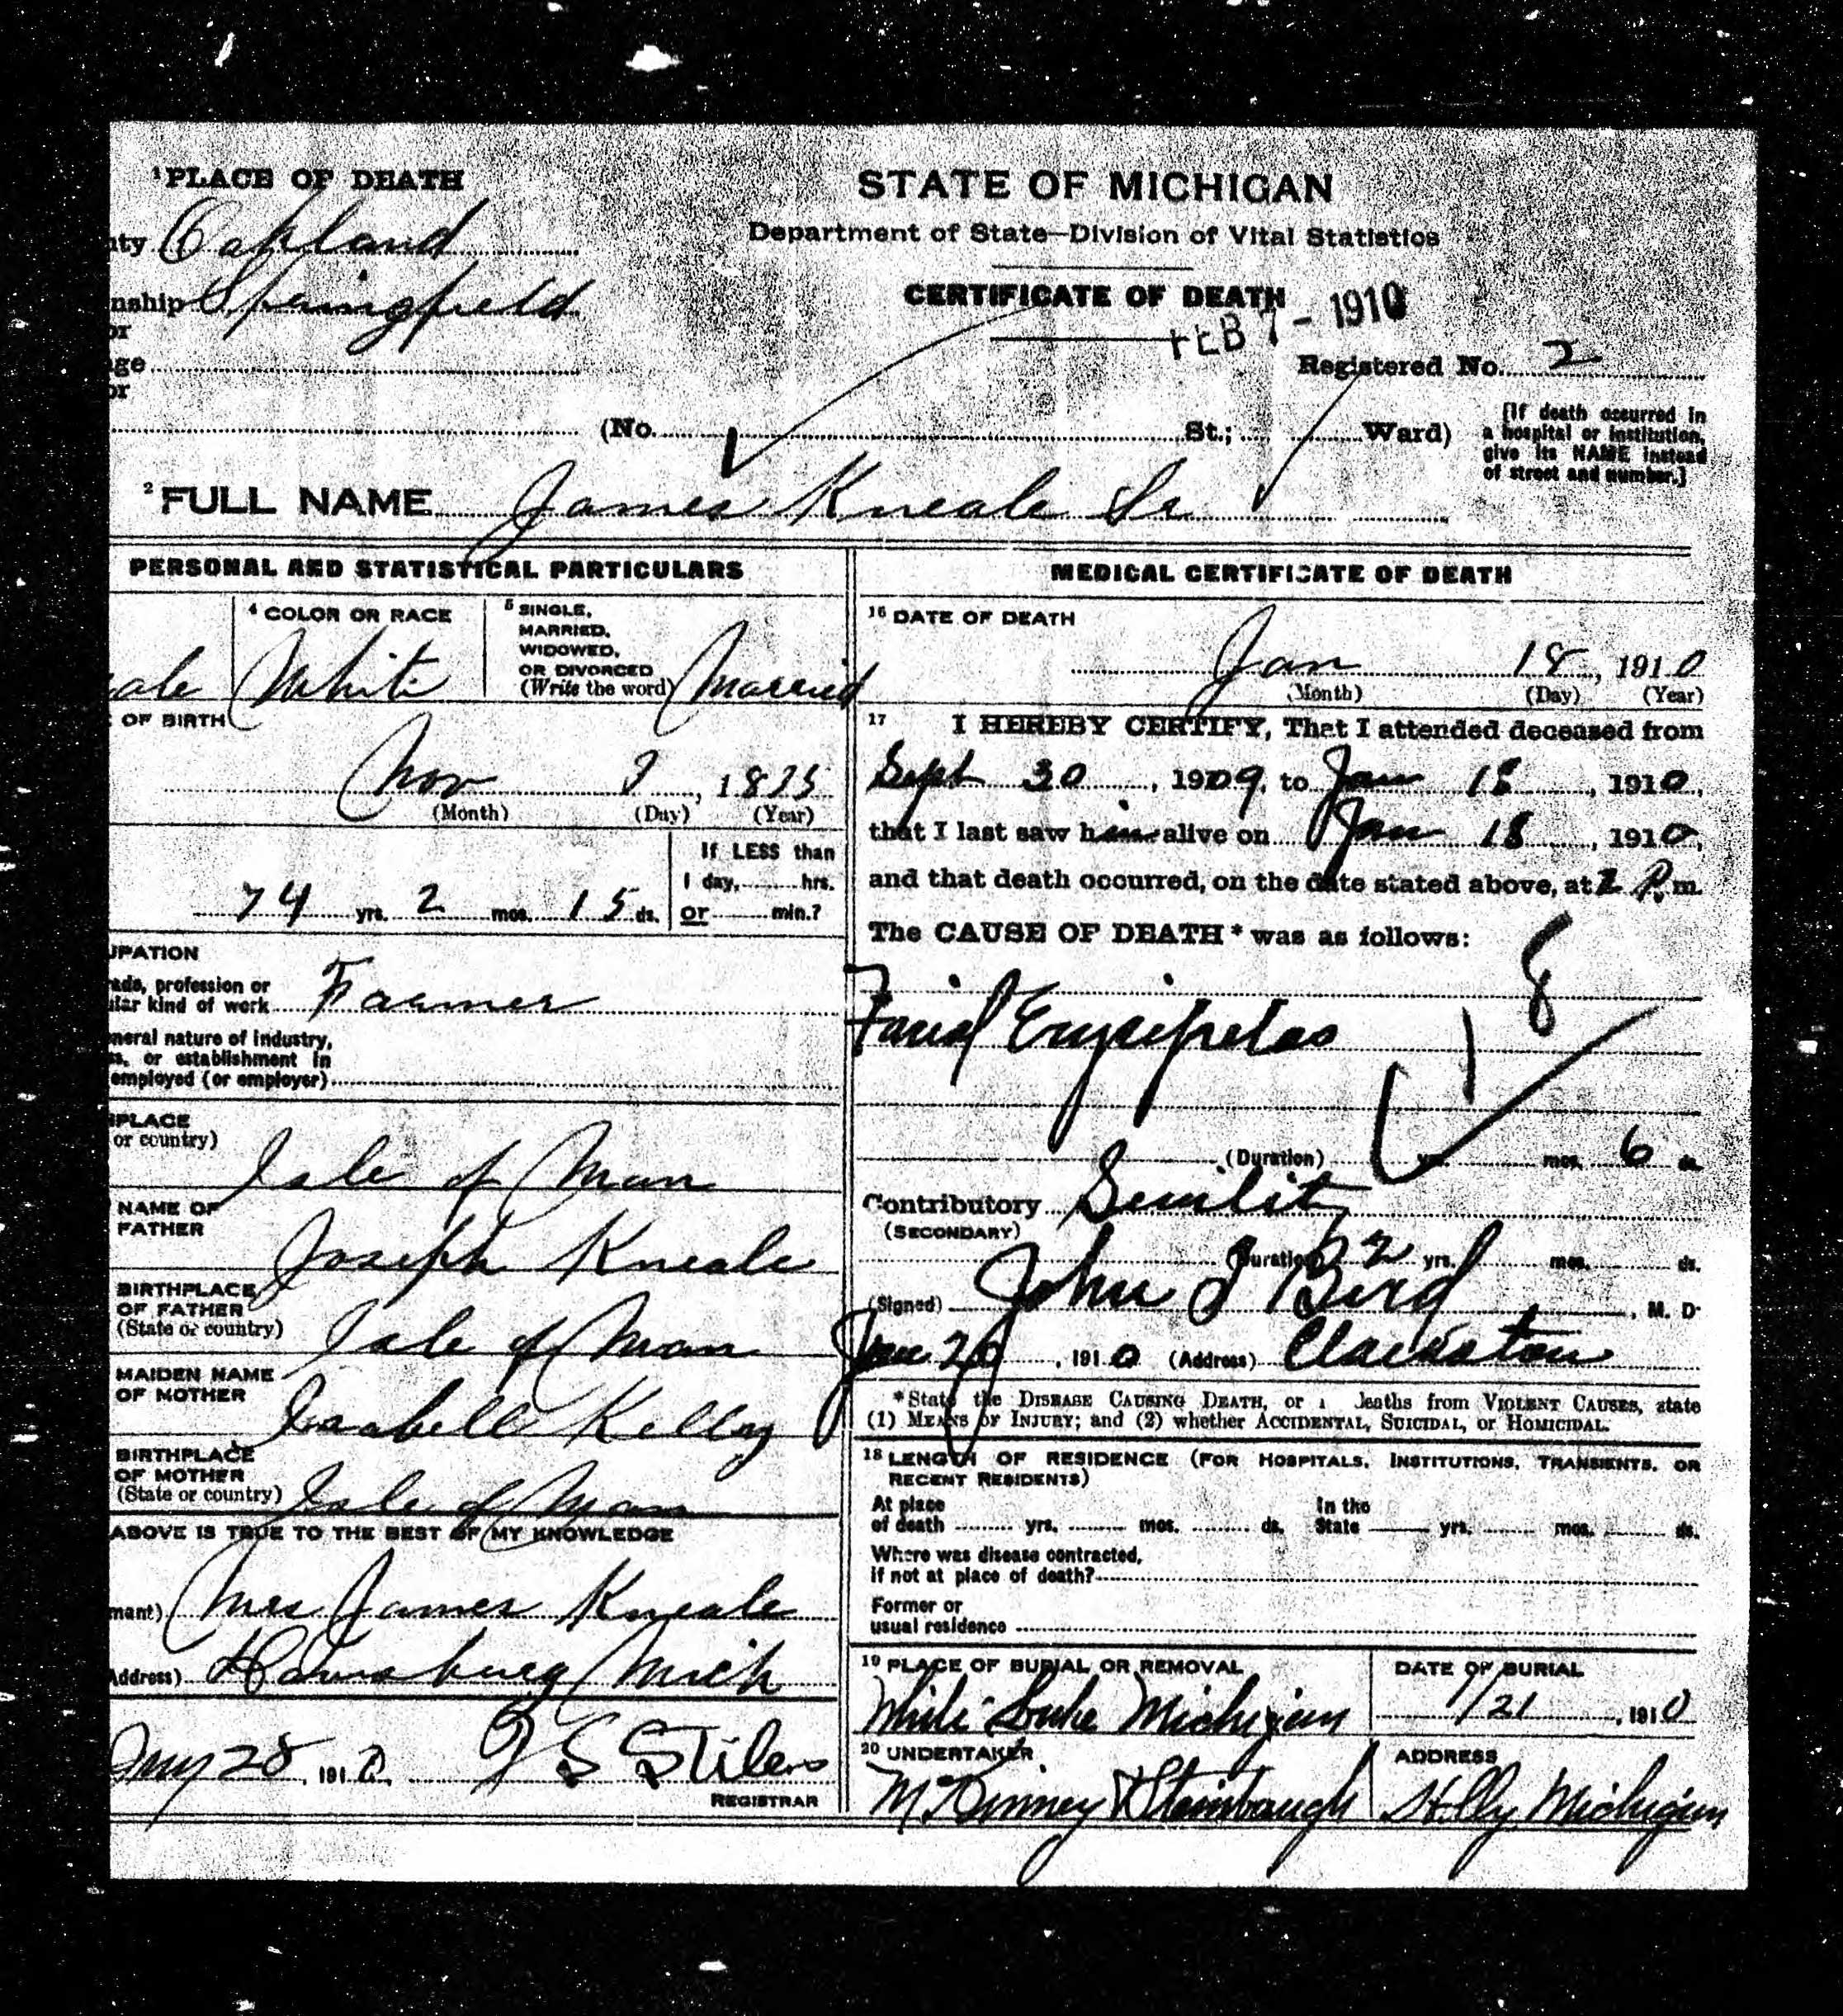 ¹PLACE OF DEATH
nty Oakland
nship Springfield
or
ge
or
STATE OF MICHIGAN
Department of State—Division of Vital Statistics
CERTIFICATE OF DEATH
FEB 7 - 1910
Registered No. 2
(No. St.; Ward)
[If death occurred in
a hospital or institution,
give its NAME instead
of street and number.]
² FULL NAME James Kneale Sr
PERSONAL AND STATISTICAL PARTICULARS
ale
⁴ COLOR OR RACE
White
⁵ SINGLE,
MARRIED,
WIDOWED,
OR DIVORCED
(Write the word) Married
OF BIRTH
Nov 3, 1835
(Month) (Day) (Year)
74 yrs. 2 mos. 15 ds.
If LESS than
1 day, hrs.
or min.?
UPATION
ade, profession or
ular kind of work Farmer
neral nature of industry,
ss, or establishment in
employed (or employer)
HPLACE
or country)
Isle of Man
NAME OF
FATHER
Joseph Kneale
BIRTHPLACE
OF FATHER
(State or country) Isle of Man
MAIDEN NAME
OF MOTHER
Isabell Kelley
BIRTHPLACE
OF MOTHER
(State or country) Isle of Man
ABOVE IS TRUE TO THE BEST OF MY KNOWLEDGE
mant) Mrs James Kneale
Address) Davisburg Mich
Jany 28, 1910. Stiles
REGISTRAR
MEDICAL CERTIFICATE OF DEATH
¹⁶ DATE OF DEATH
Jan 18, 1910
(Month) (Day) (Year)
¹⁷ I HEREBY CERTIFY, That I attended deceased from
Sept 30, 1909, to Jan 18, 1910,
that I last saw him alive on Jan 18, 1910,
and that death occurred, on the date stated above, at 2 P.m.
The CAUSE OF DEATH* was as follows:
18
Facial Erysipelas
(Duration) yrs. mos. 6 ds.
Contributory Senility
(SECONDARY)
(Duration) 2 yrs. mos. ds.
(Signed) John J Bird, M. D.
Jan 20, 1910 (Address) Clarkston
*State the DISEASE CAUSING DEATH, or i deaths from VIOLENT CAUSES, state
(1) MEANS OF INJURY; and (2) whether ACCIDENTAL, SUICIDAL, or HOMICIDAL.
¹⁸ LENGTH OF RESIDENCE (FOR HOSPITALS, INSTITUTIONS, TRANSIENTS, OR
RECENT RESIDENTS)
At place
of death yrs. mos. ds.
In the
State yrs. mos. ds.
Where was disease contracted,
if not at place of death?
Former or
usual residence
¹⁹ PLACE OF BURIAL OR REMOVAL
White Lake Michigan
DATE OF BURIAL
1/21, 1910
²⁰ UNDERTAKER
McKinney & Steinbaugh
ADDRESS
Holly, Michigan